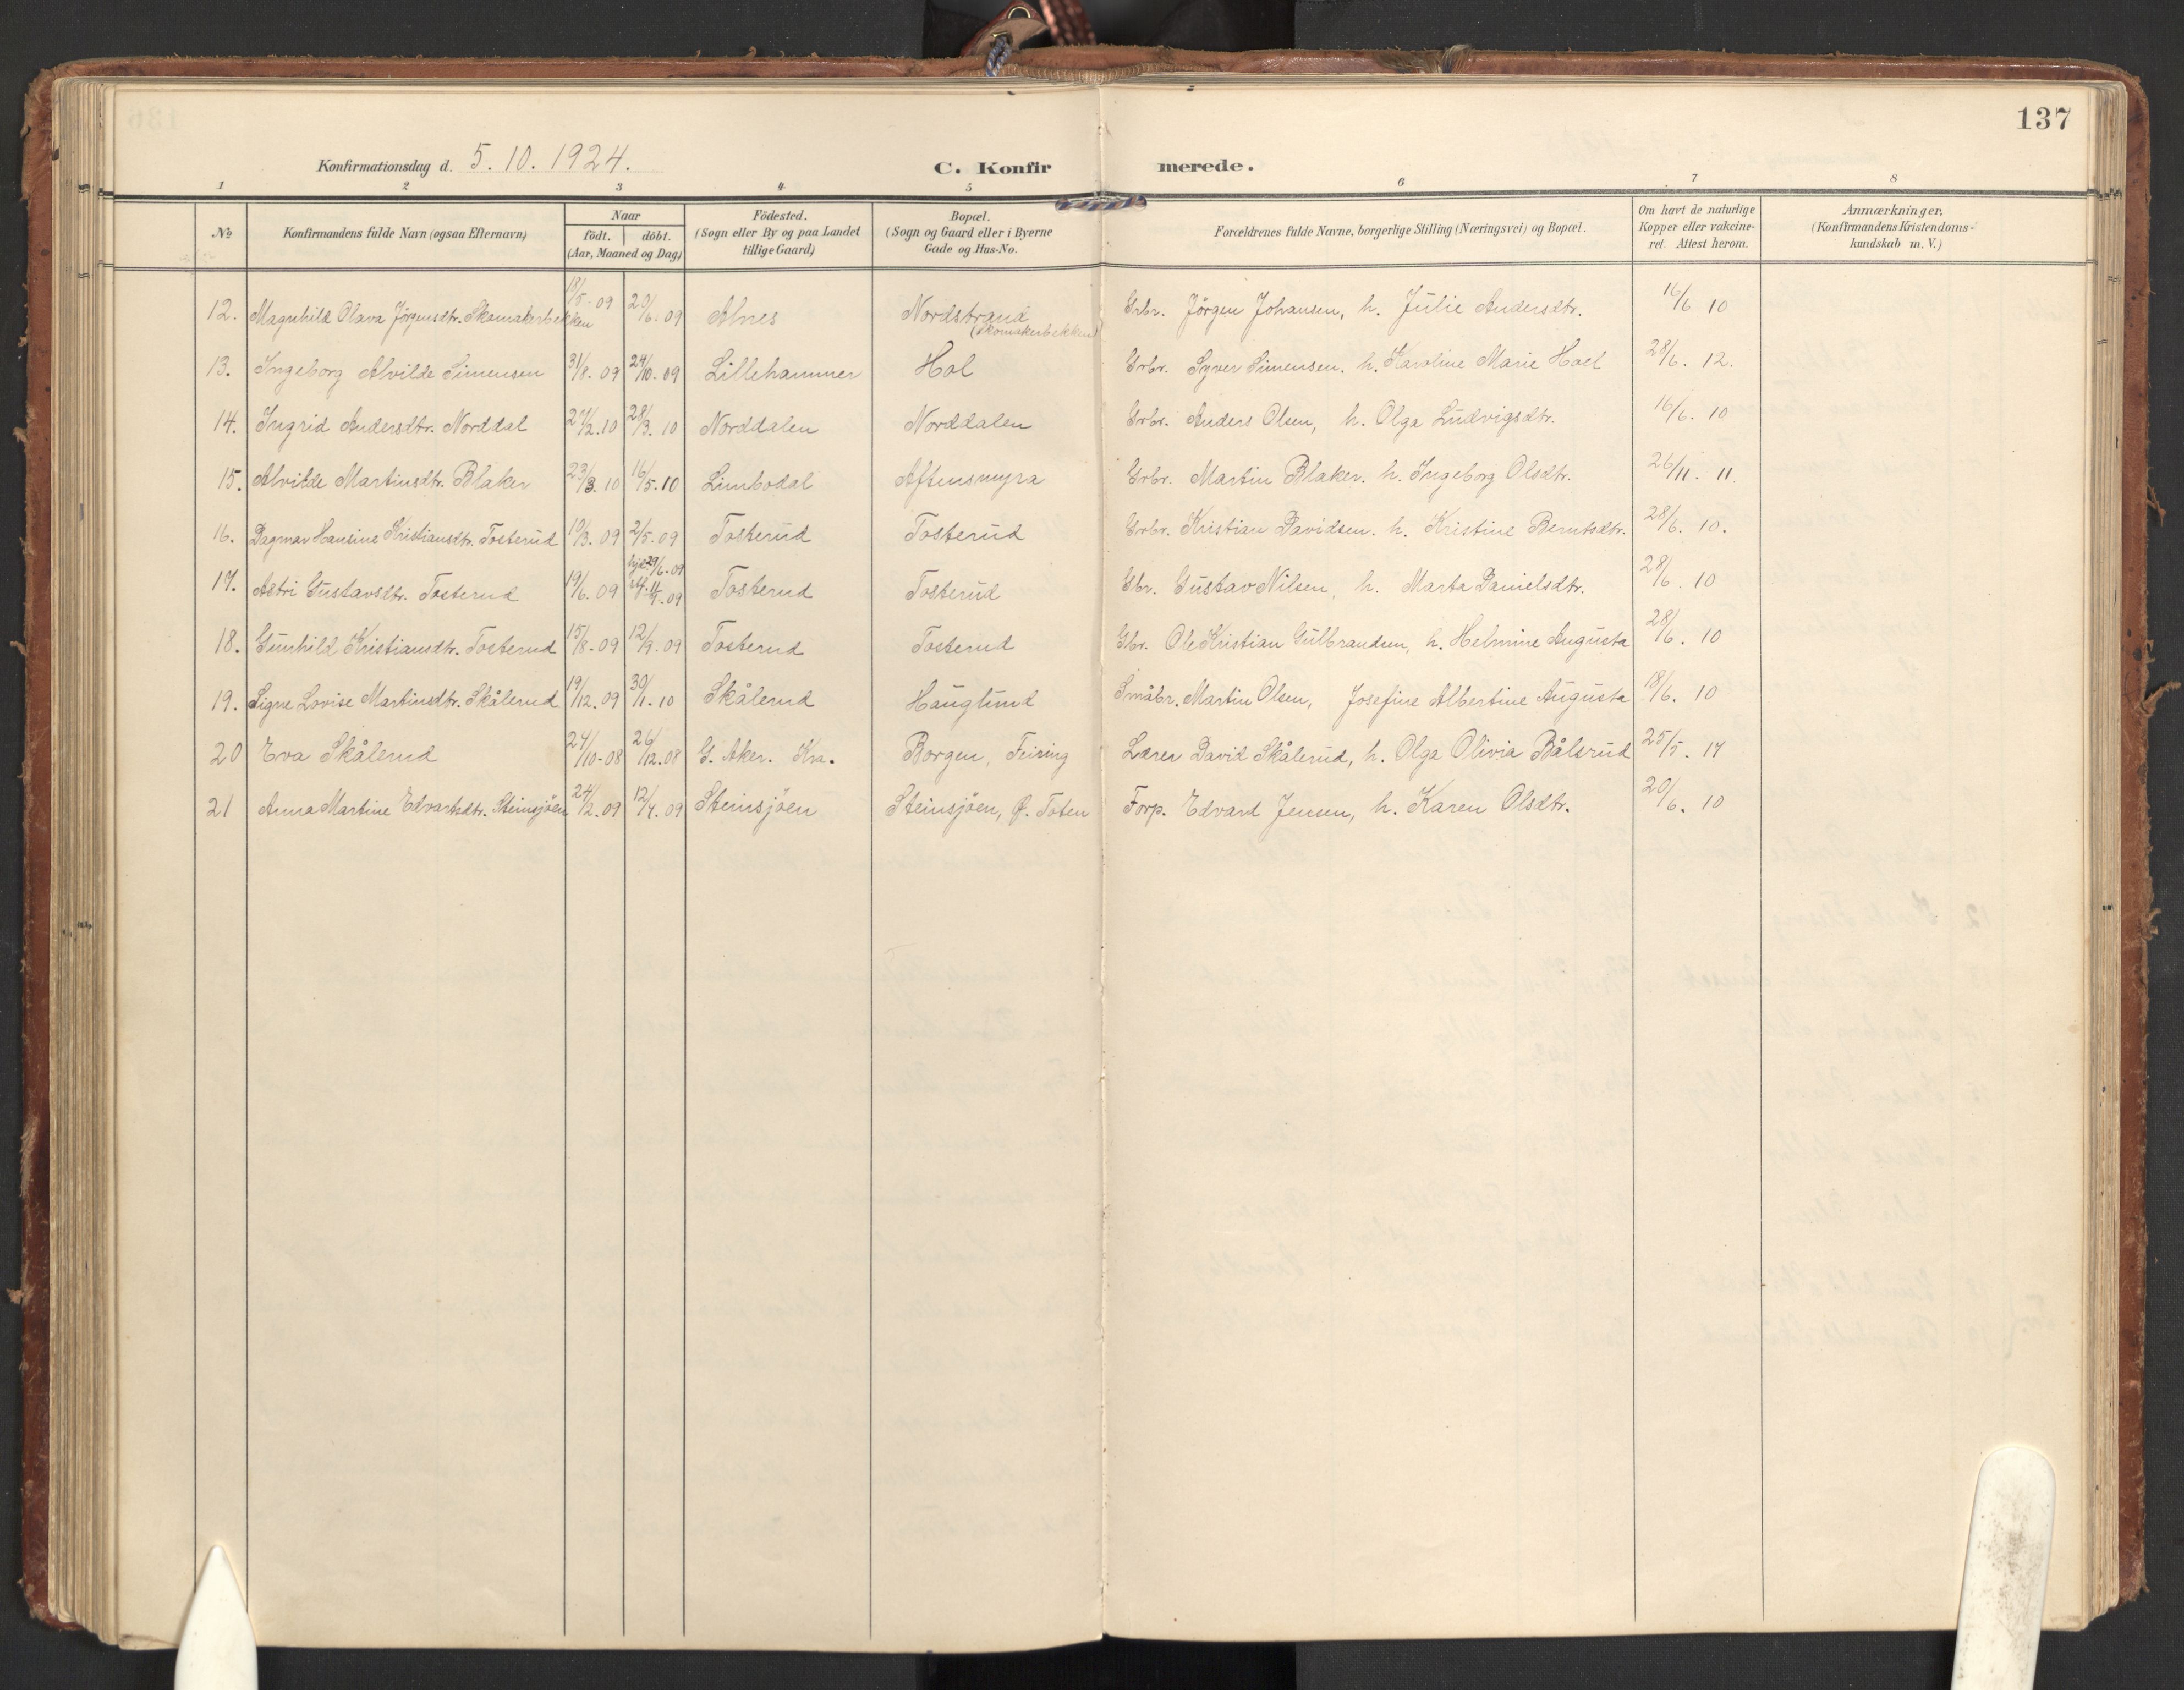 137
Konfirmationsdag d. 5. 10. 1924.
C. Konfir merede.
1 2 3 4 5 6 7 8
No
Konfirmandens fulde Navn (ogsaa Efternavn)
Naar
födt. döbt.
(Aar, Maaned og Dag)
Födested.
(Sogn eller By og paa Landet
tillige Gaard)
Bopæl.
(Sogn og Gaard eller i Byerne
Gade og Hus-No.
Forældrenes fulde Navne, borgerlige Stilling (Næringsvei) og Bopæl.
Om havt de naturlige
Kopper eller vakcine-
ret. Attest herom.
Anmærkninger,
(Konfirmandens Kristendoms-
kundskab m. V.)
12. Magnhild Olava Jörgensdtr. Skomakerbekken 18/5-09 20/6-09 Alnes Nordstrand Grbr. Jörgen Johansen, h. Julie Andersdtr. 16/6 10
(Skomakerbekken)
13. Ingeborg Alvilde Simensen 31/8-09 24/10-09 Lillehammer Hol Grbr. Syver Simensen. h. Karoline Marie Hoel 28/6. 12.
14. Ingrid Andersdtr. Norddal 27/2.10 28/3. 10 Norddalen Norddalen Grbr. Anders Olsen, h. Olga Ludvigsdtr. 16/6. 10
15. Alvilde Martinsdtr. Blaker 23/3.10 16/5.10 Limbodal Aftensmyra Grbr. Martin Blaker. h. Ingeborg Olsdtr. 26/11. 11.
16. Dagmar Hansine Kristiansdtr. Tosterud 19/3. 09 2/5-09 Tosterud Tosterud Grbr. Kristian Davidsen. h. Kristine Berntsdtr. 28/6. 10.
17. Astri Gustavsdtr. Tosterud 19/6. 09 hjd. 29/6-09 Tosterud Tosterud Gbr. Gustav Nilsen, h. Marta Danielsdtr. 28/6. 10
18. Gunhild Kristiansdtr. Tosterud 15/8-09 12/9.09 Tosterud Tosterud Gbr. Ole Kristian Gulbrandsen, h. Helmine Augusta 28/6. 10
19. Signe Lovise Martinsdtr. Skålerud 19/12.09 30/1-10 Skålerud Hauglund Småbr. Martin Olsen, Josefine Albertine Augusta 18/6. 10
20 Eva Skålerud 24/10-08 26/12.08 G. Aker. Kra. Borgen, Feiring Lærer David Skålerud, h. Olga Olivia Bålsrud 25/5. 14
21 Anna Martine Edvartsdtr. Steinsjöen 24/2.09 12/4.09 Steinsjöen Steinsjöen, Ø. Toten Forp. Edvard Jensen, h. Karen Olsdtr. 20/6. 10